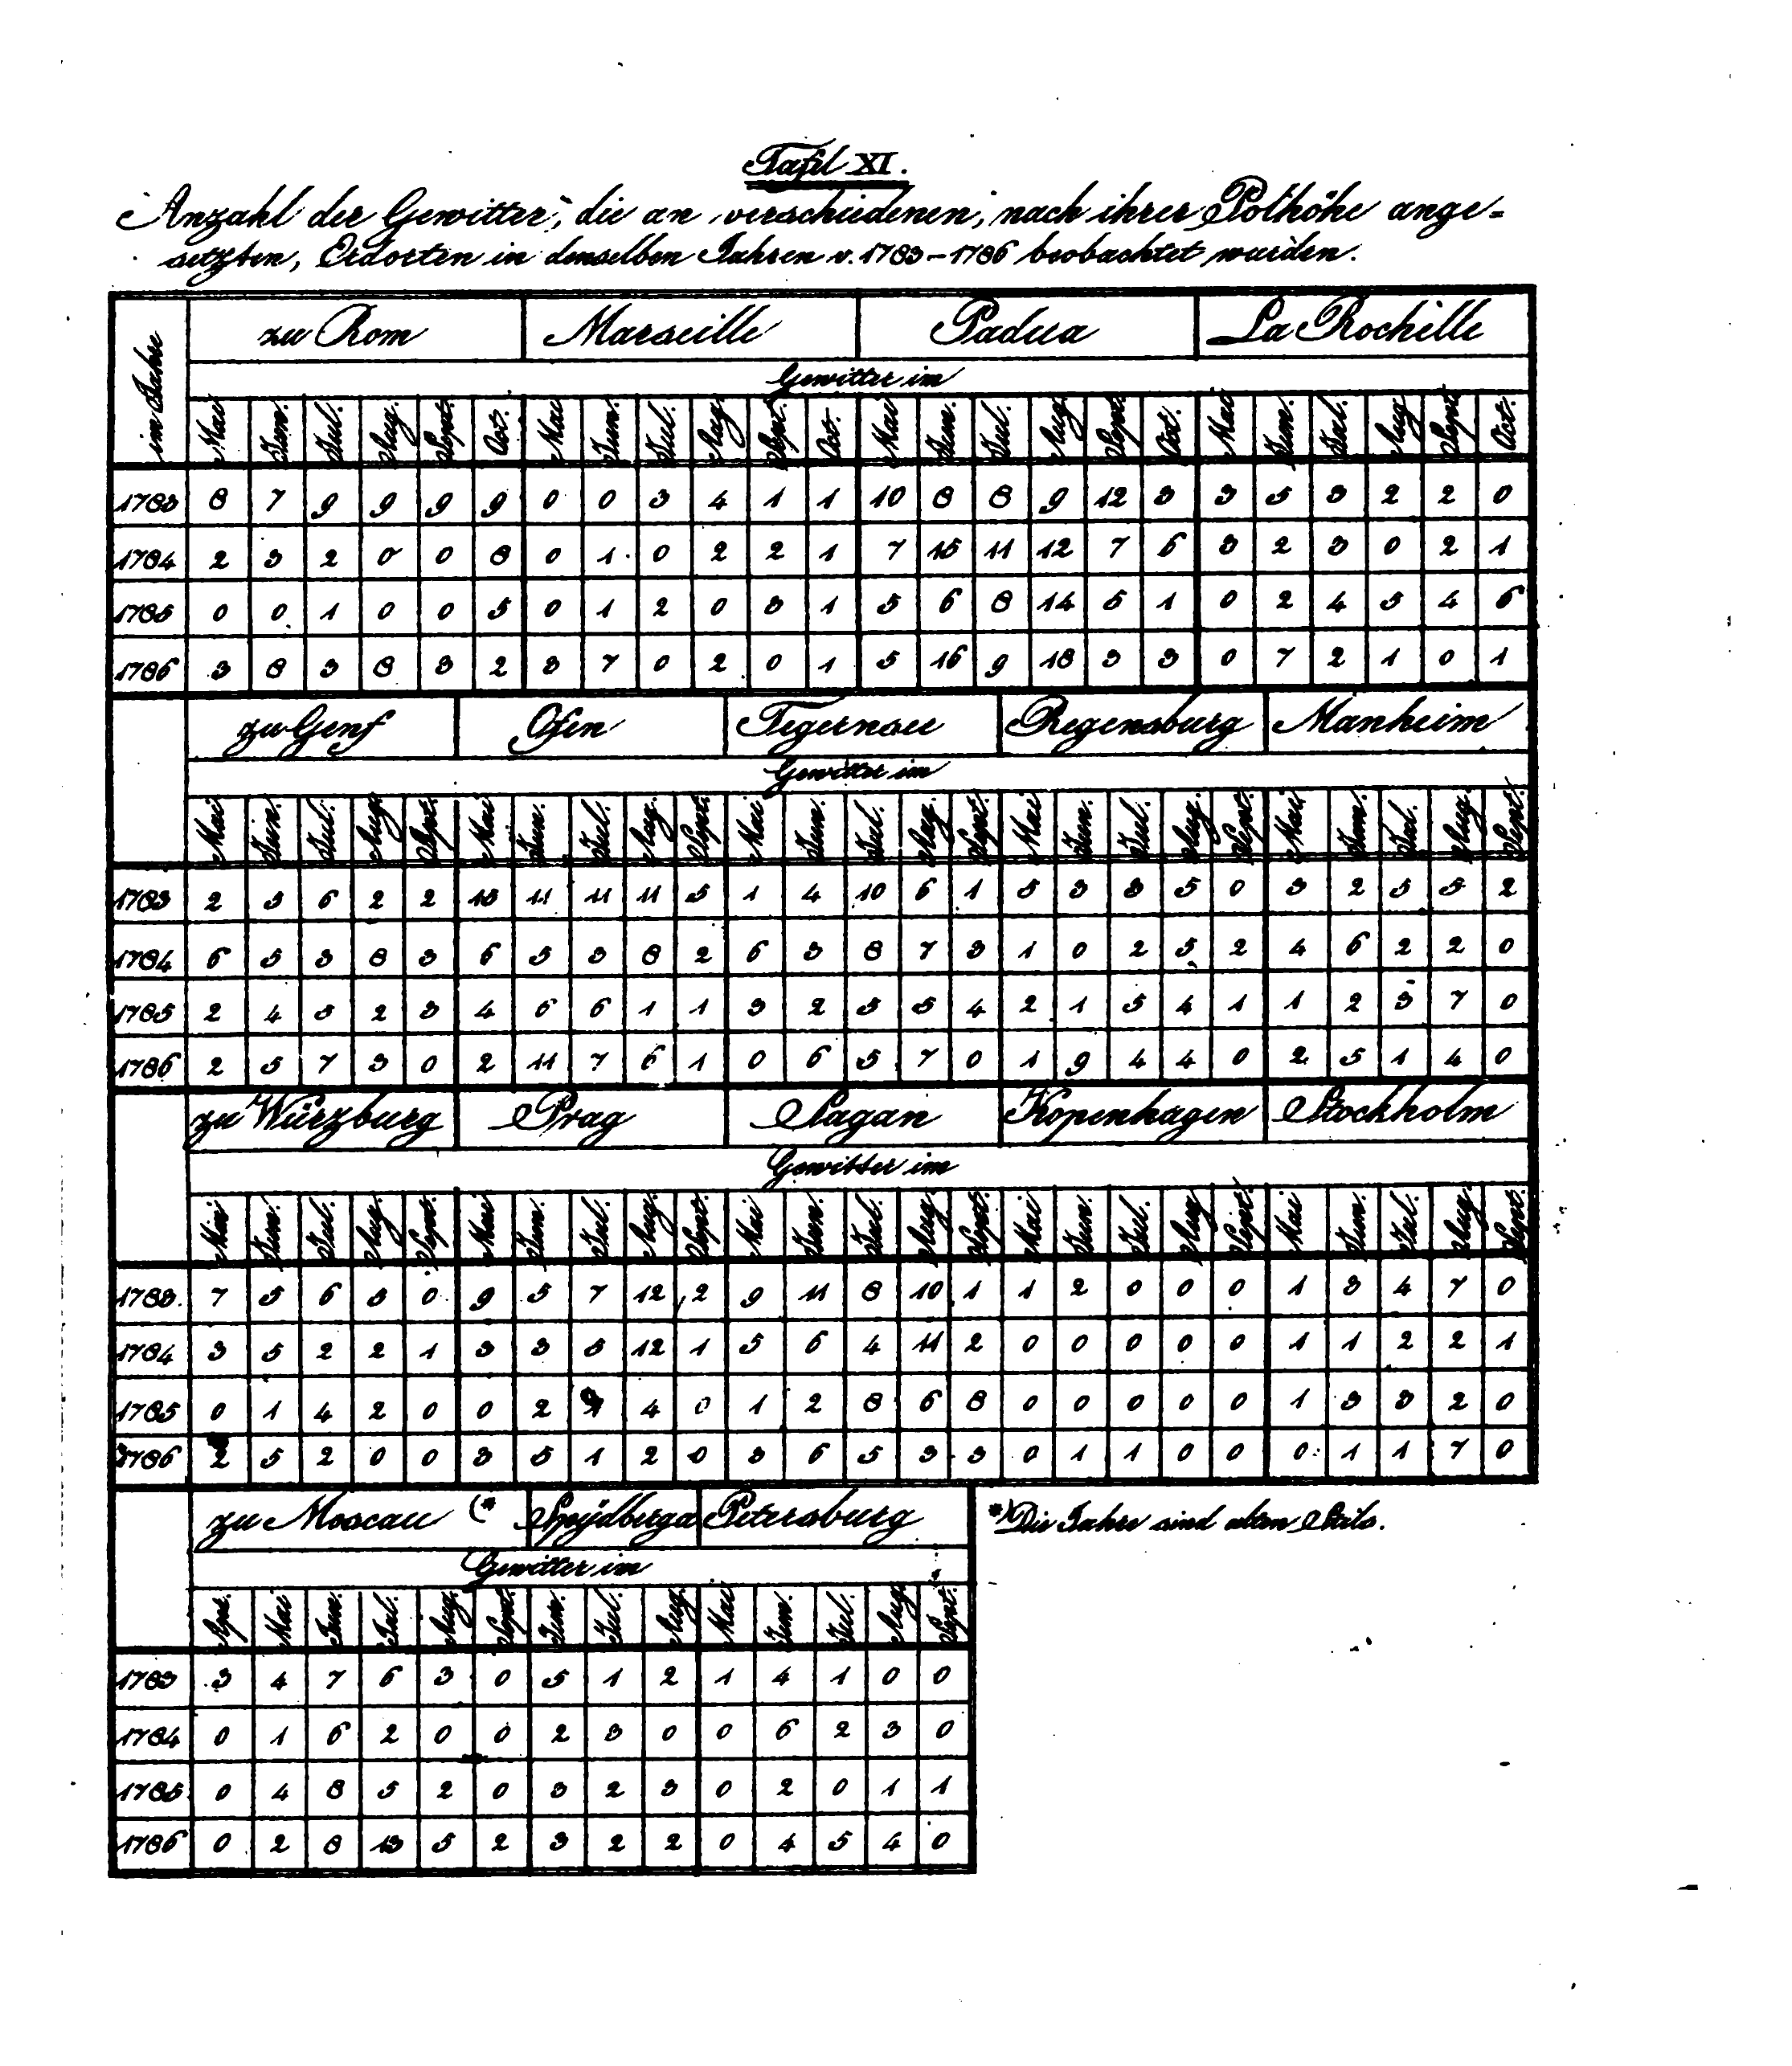 Tafel XI.
Anzahl der Gewitter, die an verschiedenen, nach ihrer Polhöhe ange=
setzten, Erdorten in denselben Jahren v. 1783–1786 beobachtet wurden.
im Jahre zu Rom Marseille Padua La Rochelle
Gewitter im
Mai Jun. Jul. Aug. Sept. Oct. Mai Jun. Jul. Aug. Sept. Oct. Mai Jun. Jul Aug Sept. Oct. Mai Jun. Jul. Aug Sept Oct.
1783 8 7 9 9 9 9 0 0 3 4 1 1 10 8 8 9 12 3 3 5 3 2 2 0
1784 2 3 2 0 0 8 0 1 0 2 2 1 7 15 11 12 7 6 3 2 3 0 2 1
1785 0 0 1 0 0 5 0 1 2 0 3 1 5 6 8 14 5 1 0 2 4 5 4 6
1786 3 8 3 8 3 2 3 7 0 2 0 1 5 16 9 18 3 3 0 7 2 1 0 1
zu Genf Ofen Tegernsee Regensburg Manheim
Gewitter im
Mai Jun. Jul. Aug. Sept. Mai Jun. Jul. Aug Sept. Mai Jun. Jul. Aug. Sept. Mai Jun. Jul. Aug. Sept. Mai Jun. Jul. Aug. Sept.
1783 2 5 6 2 2 15 11 11 11 5 1 4 10 6 1 5 3 3 5 0 3 2 5 5 2
1784 6 5 3 8 3 6 5 3 8 2 6 3 8 7 3 1 0 2 5 2 4 6 2 2 0
1785 2 4 5 2 3 4 6 6 1 1 3 2 5 5 4 2 1 5 4 1 1 2 3 7 0
1786 2 5 7 3 0 2 11 7 6 1 0 6 5 7 0 1 9 4 4 0 2 5 1 4 0
zu Würzburg Prag Sagan Kopenhagen Stockholm
Gewitter im
Mai Jun. Jul. Aug. Sept. Mai Jun. Jul. Aug. Sept. Mai Jun. Jul. Aug. Sept. Mai Jun. Jul. Aug Sept. Mai Jun. Jul. Aug. Sept.
1783. 7 5 6 5 0 9 5 7 12 2 9 11 8 10 1 1 2 0 0 0 1 3 4 7 0
1784 3 5 2 2 1 3 3 5 12 1 5 6 4 11 2 0 0 0 0 0 1 1 2 2 1
1785 0 1 4 2 0 0 2 4 0 1 2 8 6 8 0 0 0 0 0 1 3 3 2 0
1786 2 5 2 0 0 3 5 1 2 0 3 6 5 3 3 0 1 1 0 0 0 1 1 7 0
zu Moscau (* Spydberga Petersburg
*) Die Jahre sind alten Stils.
Gewitter im
Apr. Mai Jun. Jul. Aug. Sept. Jun. Jul. Aug. Mai Jun. Jul. Aug. Sept.
1783 3 4 7 6 3 0 5 1 2 1 4 1 0 0
1784 0 1 6 2 0 0 2 3 0 0 6 2 3 0
1785 0 4 8 5 2 0 3 2 3 0 2 0 1 1
1786 0 2 8 13 5 2 3 2 2 0 4 5 4 0